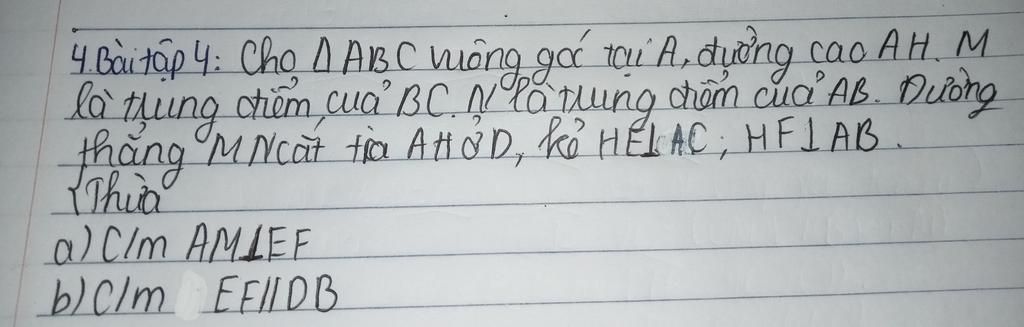 4. Bài tập 4: Cho Δ ABC vuông góc tại A, đường cao AH. M
là trung điểm của BC. N là trung điểm của AB. Đường
thẳng MN cắt tia AH ở D, kẻ HE⊥AC; HF⊥AB.
{Thừa
a) C/m AM⊥EF
b) C/m EF//DB